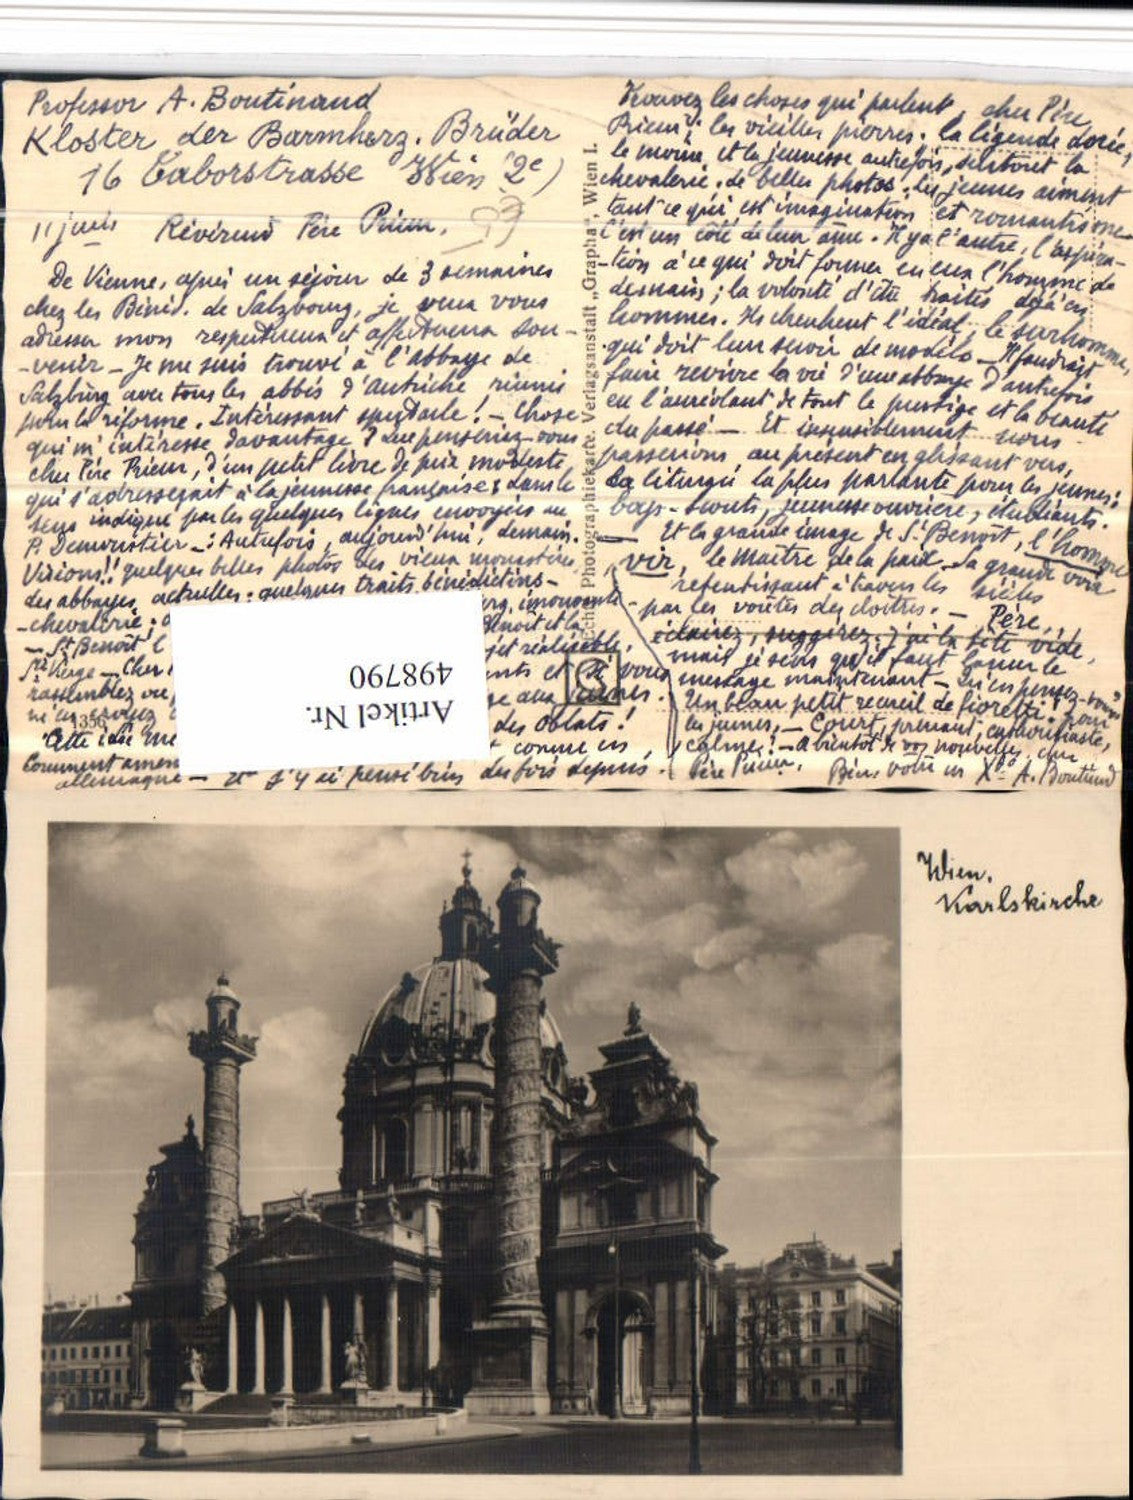 Professor A. Boutinaud
Kloster der Barmherz. Brüder
16 Taborstrasse Wien 2e)
11 juin Révérend Père Prieur,
De Vienne, après un séjour de 3 semaines
chez les Bénéd. de Salzbourg, je veux vous
adresser mon respectueux et affectueux sou-
-venir – Je me suis trouvé à l'abbaye de
Salzburg avec tous les abbés d'Autriche réunis
pour la réforme. Intéressant spectacle! – Chose
qui m'intéresse davantage? Que penseriez-vous
cher Père Prieur, d'un petit livre de prix modeste
qui s'adresserait à la jeunesse française; dans le
sens indiqué par les quelques lignes envoyées au
P. Demoustier –: Autrefois, aujourd'hui, demain.
Visions!! quelques belles photos des vieux monastères,
des abbayes actuelles: quelques traits bénédictins –
-chevalerie:
– St Benoît l
Ste Vierge – Cher
rassemblez
ne
Cette idée me
Comment
allemagne – et j'y ai pensé bien des fois depuis.
Benoît et la
jet réalisable,
et si vous
aux
des Oblats!
comme en
Trouvez les choses qui parlent, cher Père
Prieur; les vieilles pierres. la légende dorée,
le moine, et la jeunesse autrefois, surtout la
chevalerie. de belles photos. les jeunes aiment
tant ce qui est imagination et romantisme
C'est un côté de leur âme. Il y a l'autre, l'aspira-
-tion à ce qui doit former en eux l'homme de
demain; la volonté d'être traités déjà en
hommes. Ils cherchent l'idéal, le surhomme,
qui doit leur servir de modèle – Il faudrait
faire revivre la vie d'une abbaye d'autrefois
en l'auréolant de tout le prestige et la beauté
du passé – Et insensiblement nous
passerions au présent en glissant vers,
La liturgie la plus parlante pour les jeunes:
boys-scouts, jeunesse ouvrière, étudiants.
– Et la grande image de St Benoît, l'homme
vir, le Maître de la paix. Sa grande voix
retentissant à travers les siècles
par les voûtes des cloîtres. – Père,
éclairez, suggérez: j'ai la tête vide,
mais je sens qu'il faut lancer le
message maintenant – Qu'en pensez-vous
Un beau petit recueil de fioretti: pour
les jeunes, – Court, prenant, enthousiaste,
calme! – A bientôt de vos nouvelles, cher
Père Prieur. Bien vôtre en Xto A. Boutinaud
Photographiekarte. Verlagsanstalt „Grapha", Wien I.
1356
Artikel Nr.
498790
Wien.
Karlskirche